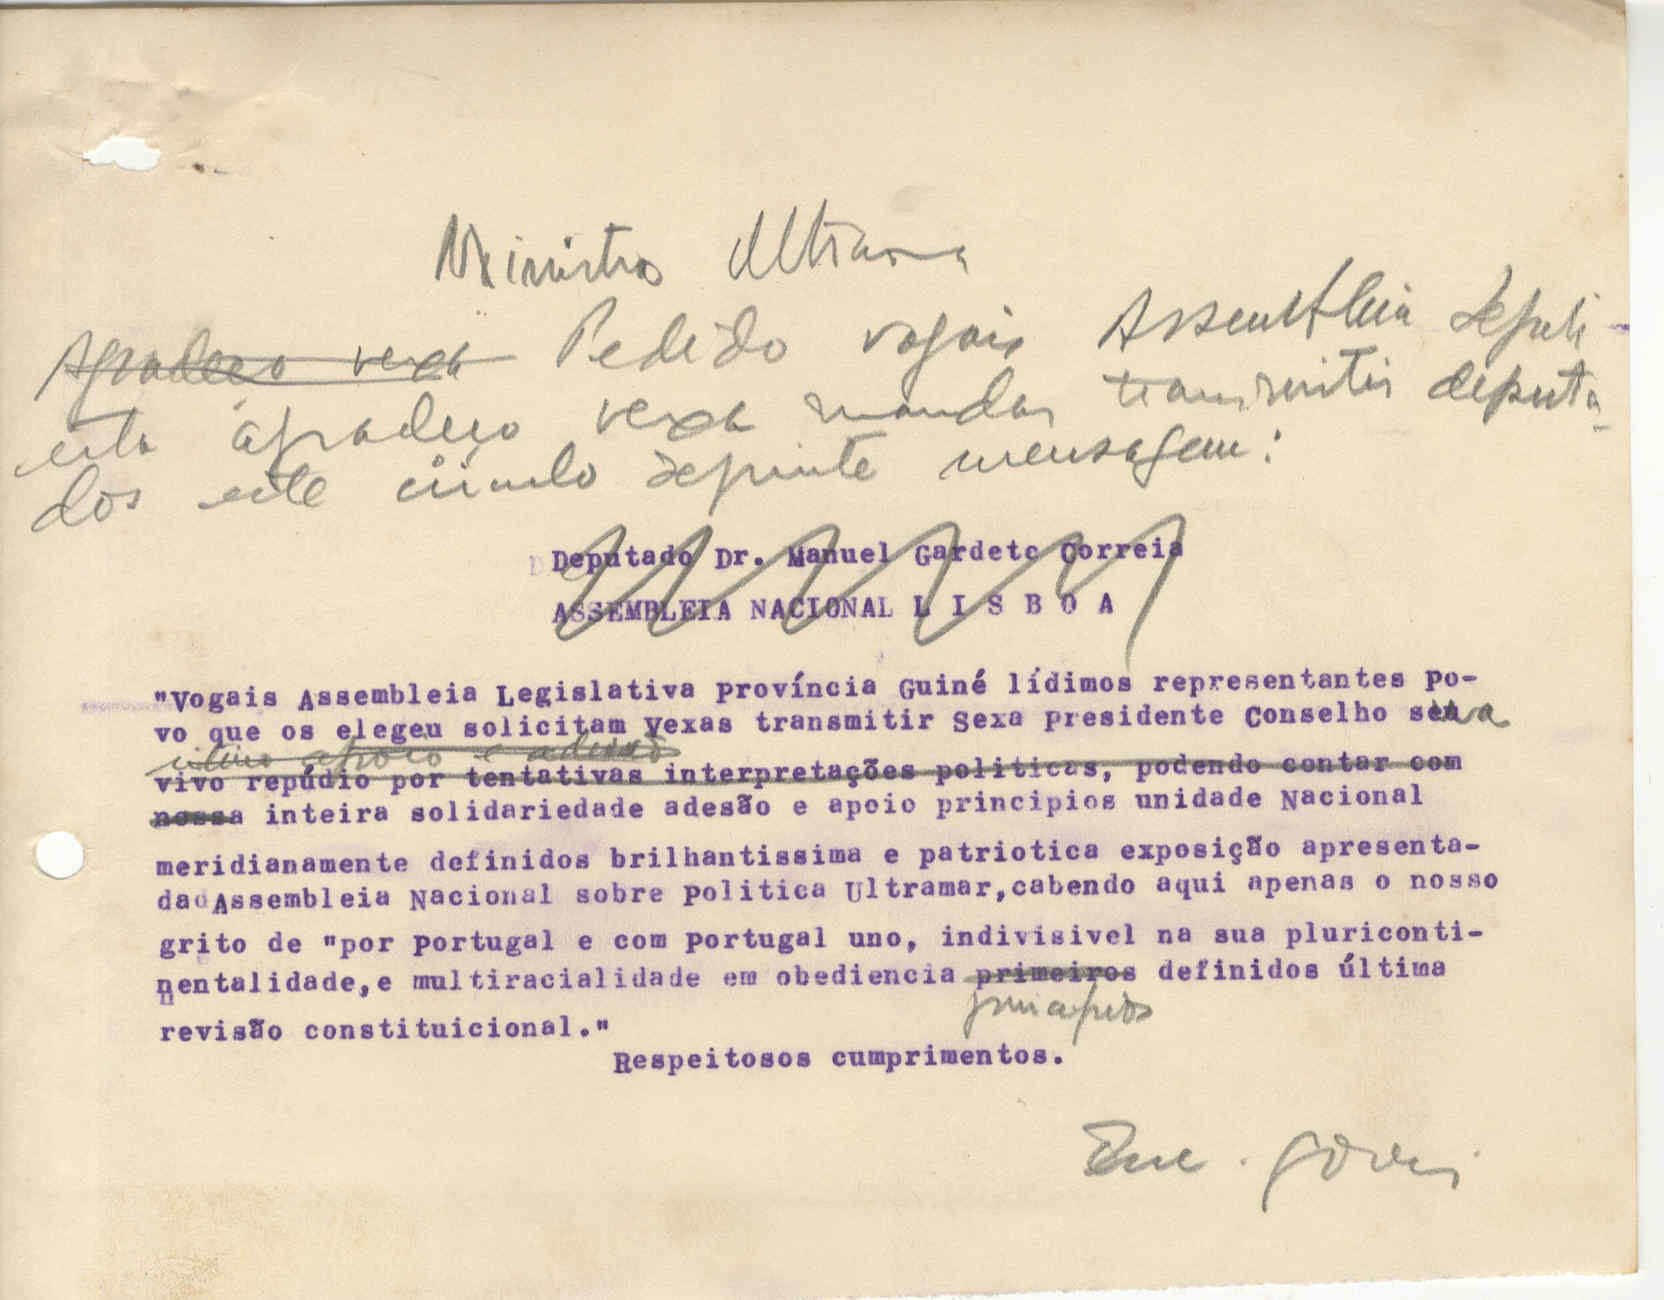 Ministro Ultrama
Agradeço vexa Pedido vogais Assembleia
esta agradeço vexa mandar transmitir deputa-
dos este círculo seguinte mensagem:
Deputado Dr. Manuel Gardete Correia
ASSEMBLEIA NACIONAL L I S B O A
"Vogais Assembleia Legislativa província Guiné lídimos representantes po-
vo que os elegeu solicitam Vexas transmitir Sexa Presidente Conselho seu
apoio e adesão
vivo repúdio por tentativas interpretações politicas, podendo contar com
nossa inteira solidariedade adesão e apoio principios unidade Nacional
meridianamente definidos brilhantissima e patriotica exposição apresenta-
da Assembleia Nacional sobre politica Ultramar,cabendo aqui apenas o nosso
grito de "por Portugal e com Portugal uno, indivisivel na sua pluriconti-
nentalidade,e multiracialidade em obediencia primeiros definidos última
principios
revisão constituicional."
Respeitosos cumprimentos.
Enc. Gover